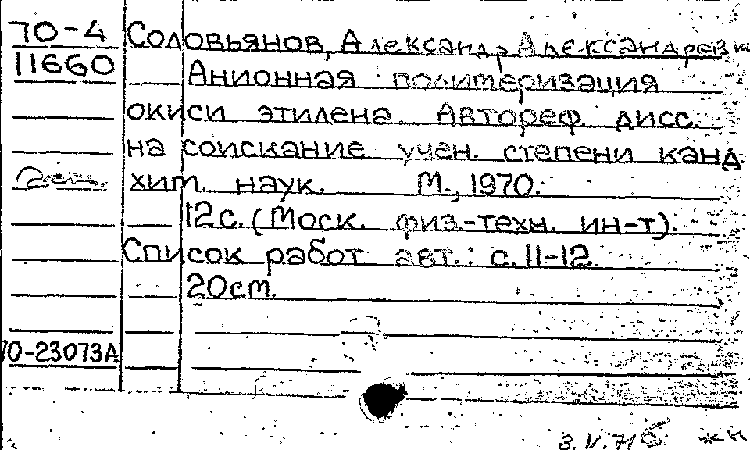 70-4 Соловьянов, Александр Александрович
11660 Анионная полимеризация
окиси этилена. Автореф. дисс.
на соискание учен. степени канд.
2 экз. хим. наук. М., 1970.
12с. (Моск. физ.-техн. ин-т).
Список работ авт.: с. 11-12.
20см.
70-23073А
3.V.71